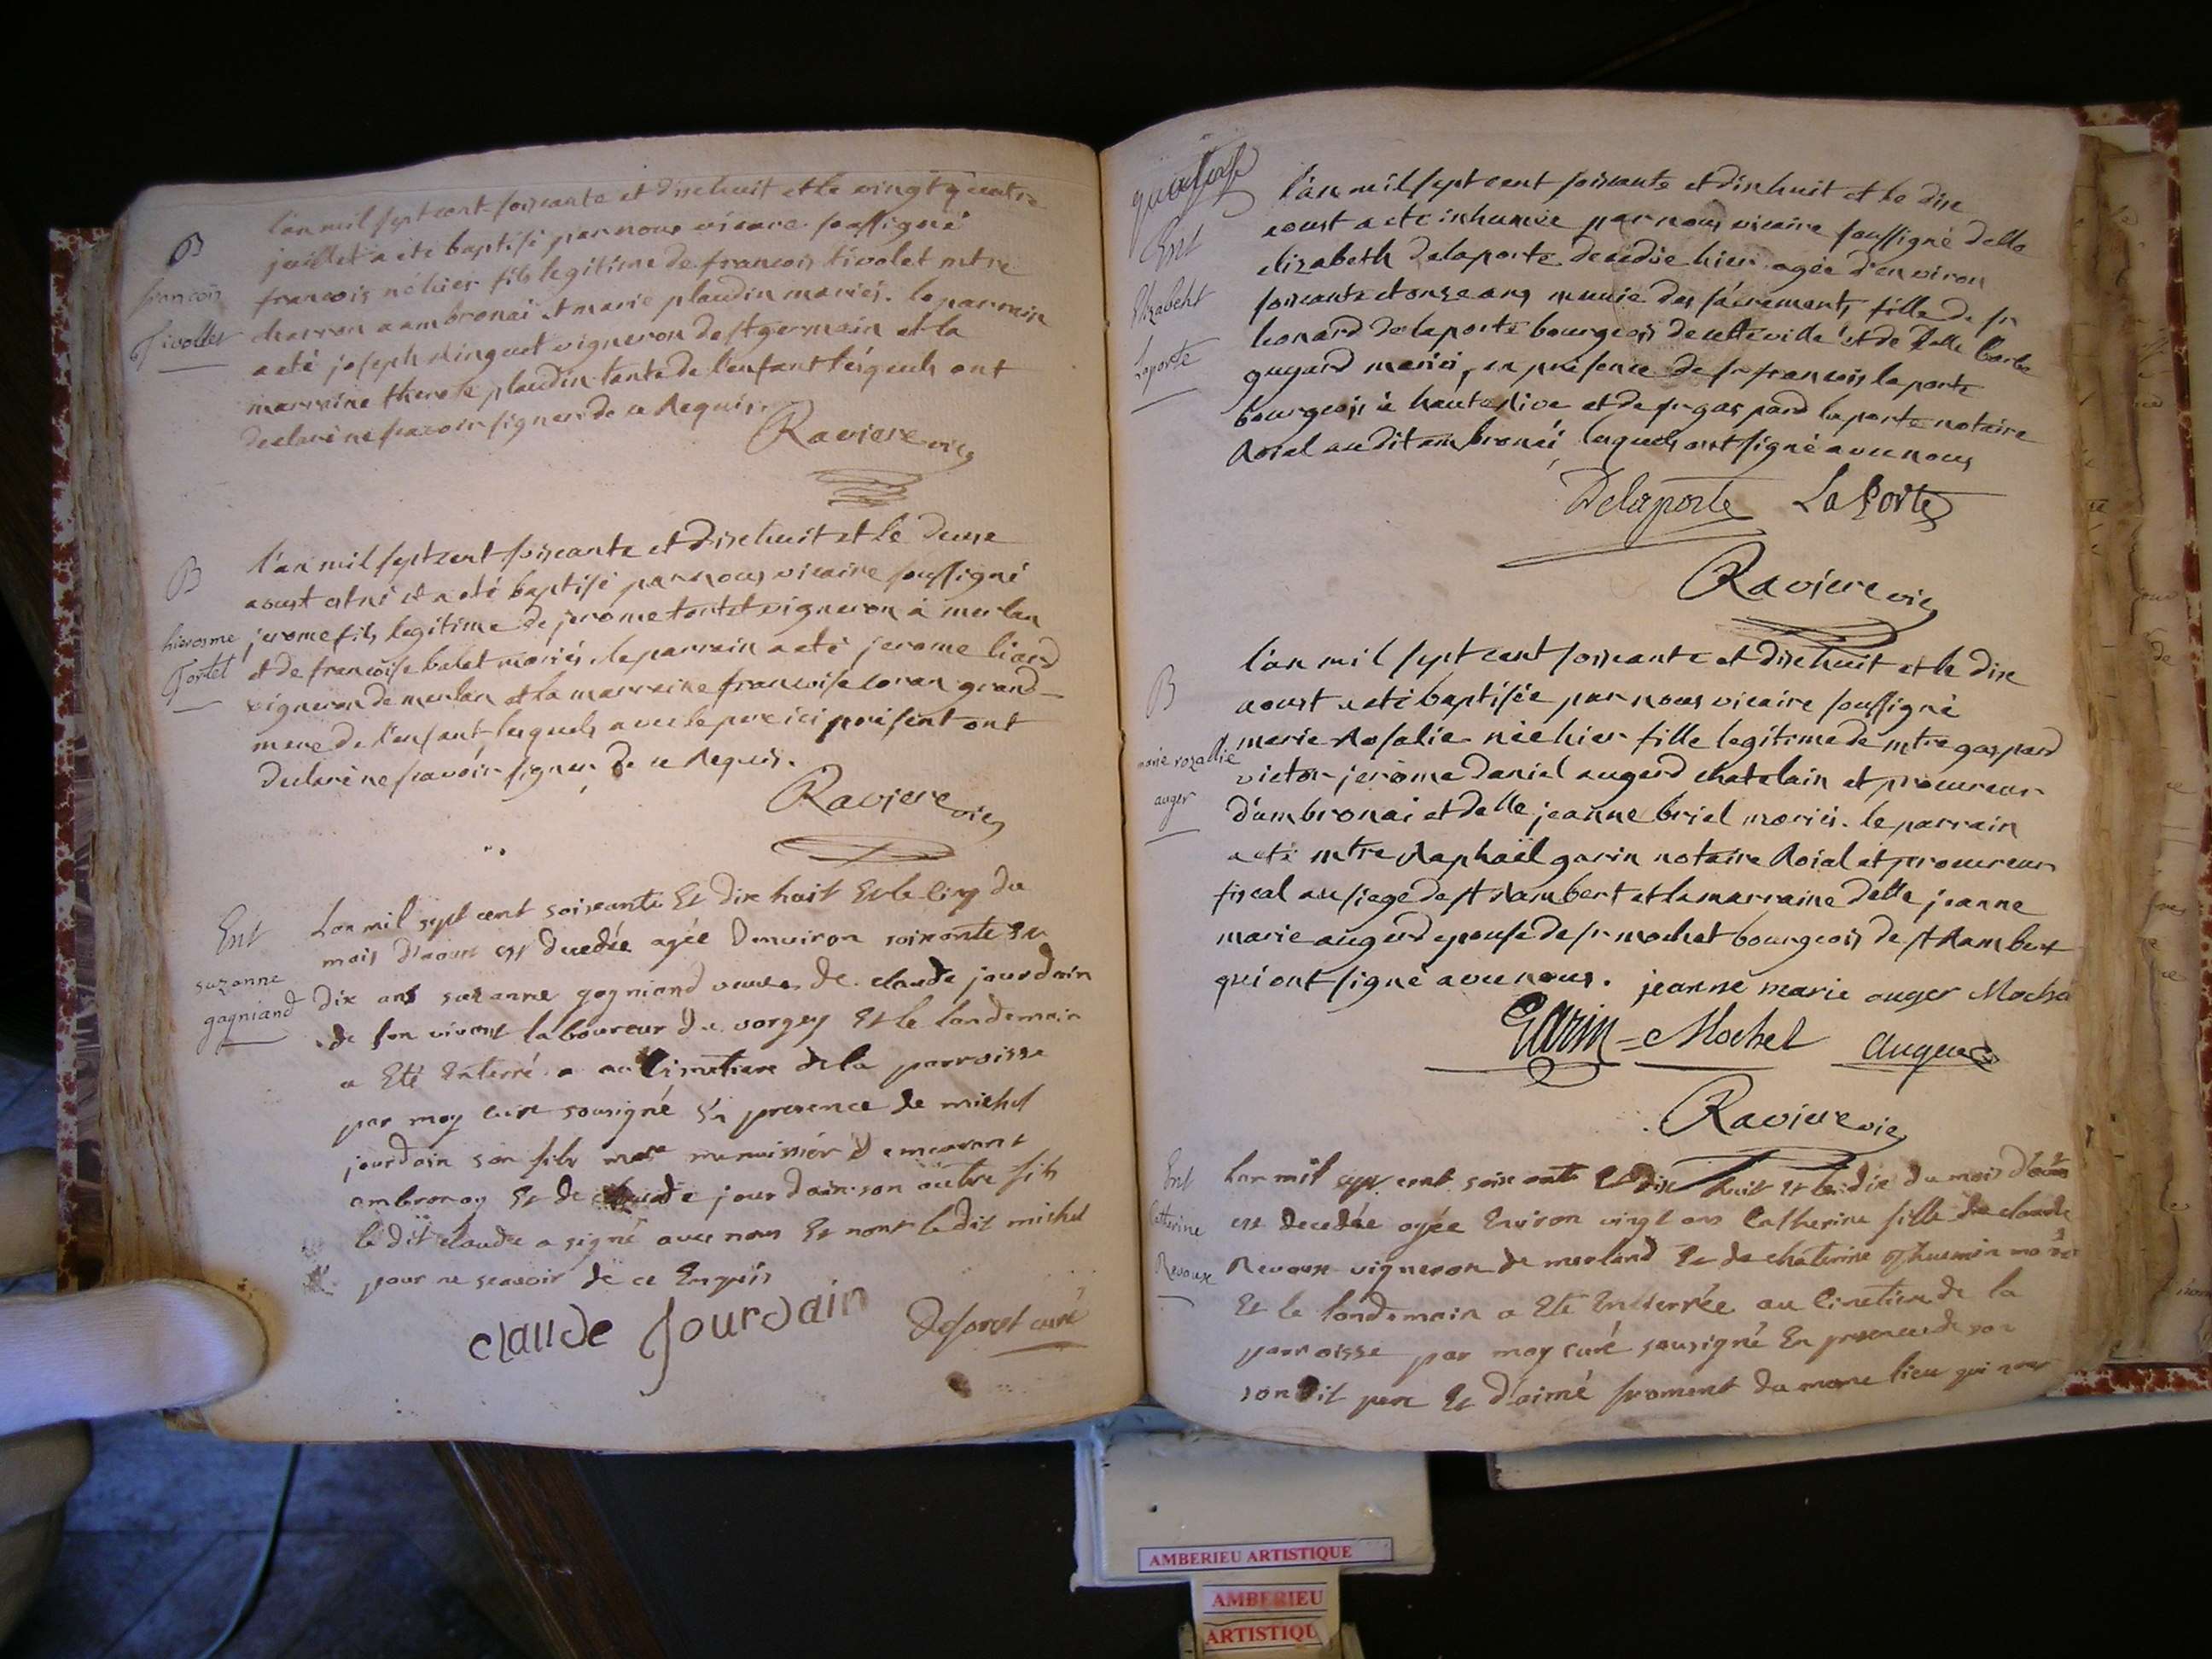 B
francois
Tivollet
l'an mil sept cent soixante et dixhuit et le vingt quatre
juillet a eté baptisé par nous vicaire soussigné
francois né hier fils legitime de francois tivolet mtre
charron a ambronai et marie plaudin mariés. le parrain
a eté joseph minguet vigneron de st germain et la
marraine therese plaudin tante de l'enfant lesquels ont
declaré ne scavoir signer de ce Requis.
Raviere vic
B
hierosme
Tortet
l'an mil sept cent soixante et dixhuit et le deuxe
aoust est né et a eté baptisé par nous vicaire soussigné
jerome fils legitime de jerome tortet vigneron à merlan
et de francoise balet mariés, le parrain a eté jerome liard
vigneron de merlan et la marraine francoise coran grand-
mere de l'enfant lesquels avec le pere ici présent ont
declaré ne scavoir signer de ce Requis.
Raviere vic
Ent
suzanne
gagniand
Lan mil sept cent soixante Et dix huit Et le cinq du
mois d'aout est decedée agée denviron soixante Et
dix ans suzanne gagniand veuve de claude jourdain
de son vivant laboureur du vorgey Et le landemain
a Eté Enterré a au Cimetiere dela parroisse
par moy curé sousigné En presence de michel
jourdain son fils mtre menuissier demeurant
ambronay Et de claude jourdain son autre fils
le dit claude a signé avec nous Et nont le dit michel
pour ne scavoir de ce Enquis
claude Jourdain Deforest curé
quatorze
Ent
Elizabeht
Laporte
l'an mil sept cent soixante et dixhuit et le dix
aoust a eté inhumée par nous vicaire soussigné delle
elizabeth delaporte decedée hier agée d'environ
soixante et onze ans munie des sacrements, fille de sr
leonard delaporte bourgeois de cette ville et de delle barbe
guyard mariés, en présence de sr francois laporte
bourgeois à hauterive et de sr gaspard laporte notaire
Roial au dit ambronai lesquels ont signé avec nous
Delaporte LaPorte
Raviere vic
B
marie rozallie
auger
l'an mil sept cent soixante et dixhuit et le dix
aoust a eté baptisée par nous vicaire soussigné
marie Rosalie née hier fille legitime de mtre gaspard
victor jerôme daniel augerd chatelain et procureur
d'ambronai et delle jeanne briel mariés. le parrain
a eté mtre Raphaël garin notaire Roial et procureur
fiscal au siege de st Rambert et la marraine delle jeanne
marie augerd epouse de sr mochet bourgeois de st Rambert
qui ont signé avec nous. jeanne marie auger Mochet
Garin Mochet Augerd
Raviere vic
Ent
Catherine
Revoux
Lan mil sept cent soixante Et dix huit Et le dix du mois d'aout
est decedée agée Environ vingt ans Catherine fille de claude
Revoux vigneron de merland Et de chaterine Thuemin mariés
Et le landemain a Eté Enterrée au Cimetiere de la
parroisse par moy curé sousigné En presence de son
son dit pere Et d'aimé froment du meme lieu qui nont
AMBERIEU ARTISTIQUE
AMBERIEU
ARTISTIQU